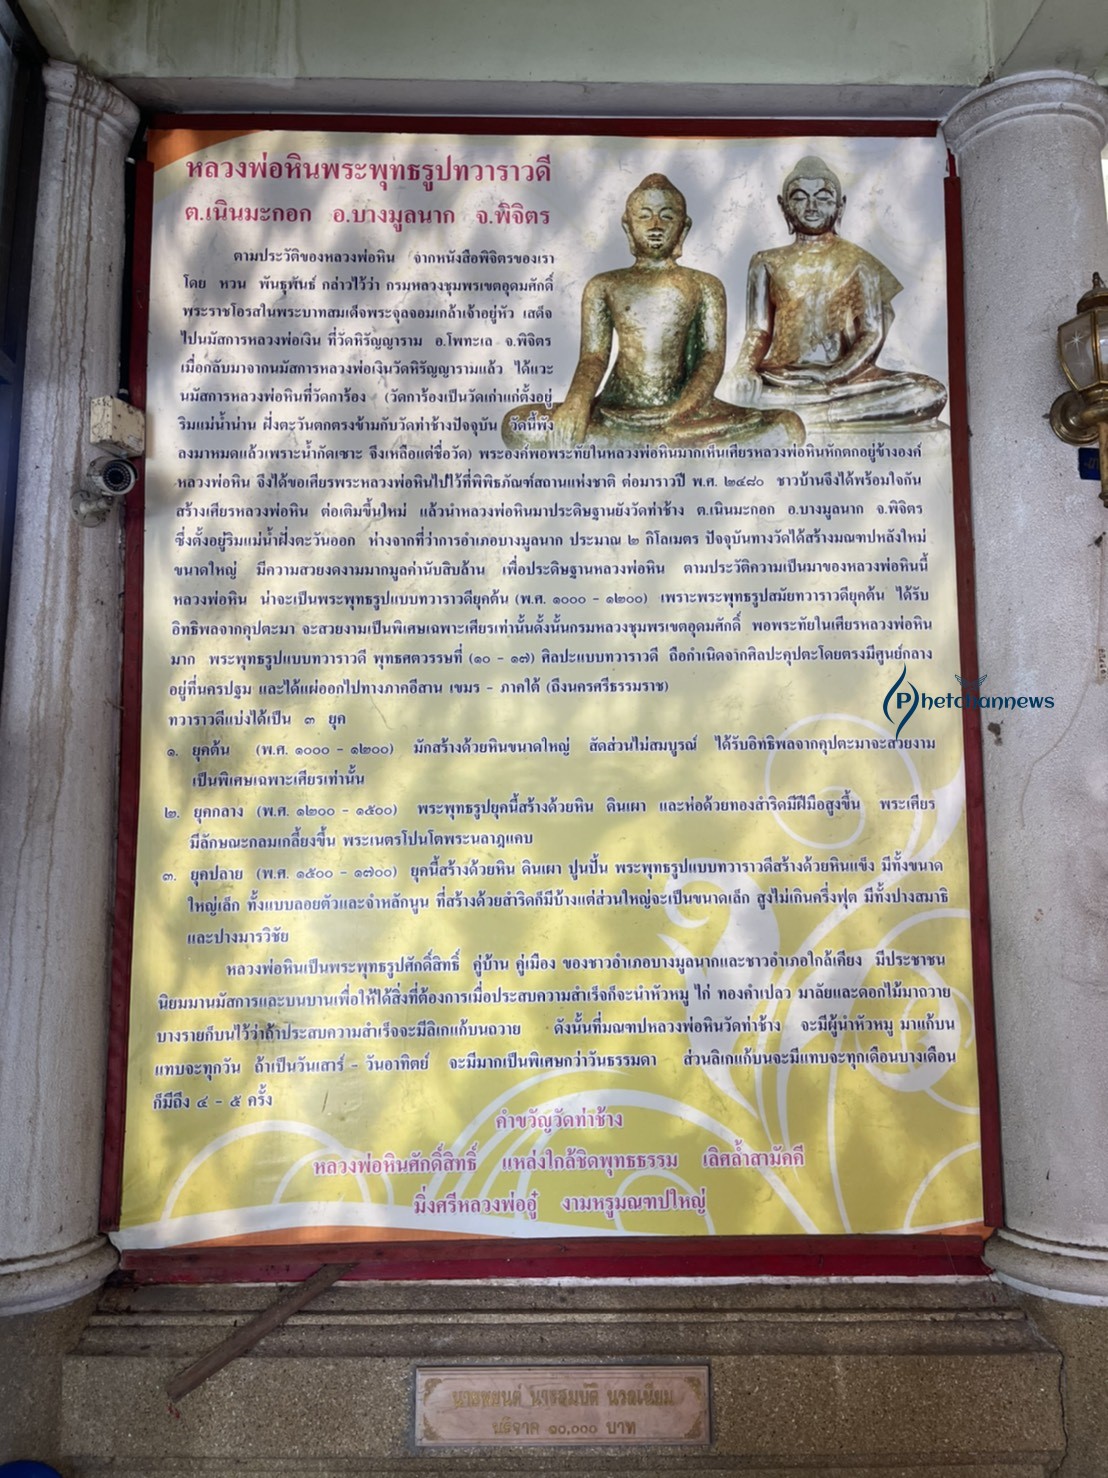 หลวงพ่อหินพระพุทธรูปทวาราวดี
ต.เนินมะกอก อ.บางมูลนาก จ.พิจิตร
ตามประวัติของหลวงพ่อหิน จากหนังสือพิจิตรของเรา
โดย หวน พันธุพันธ์ กล่าวไว้ว่า กรมหลวงชุมพรเขตอุดมศักดิ์
พระราชโอรสในพระบาทสมเด็จพระจุลจอมเกล้าเจ้าอยู่หัว เสด็จ
ไปนมัสการหลวงพ่อเงิน ที่วัดหิรัญญาราม อ.โพทะเล จ.พิจิตร
เมื่อกลับมาจากนมัสการหลวงพ่อเงินวัดหิรัญญารามแล้ว ได้แวะ
นมัสการหลวงพ่อหินที่วัดการ้อง (วัดการ้องเป็นวัดเก่าแก่ตั้งอยู่
ริมแม่น้ำน่าน ฝั่งตะวันตกตรงข้ามกับวัดท่าช้างปัจจุบัน วัดนี้พัง
ลงมาหมดแล้วเพราะน้ำกัดเซาะ จึงเหลือแต่ชื่อวัด) พระองค์พอพระทัยในหลวงพ่อหินมากเห็นเศียรหลวงพ่อหินหักตกอยู่ข้างองค์
หลวงพ่อหิน จึงได้ขอเศียรพระหลวงพ่อหินไปไว้ที่พิพิธภัณฑ์สถานแห่งชาติ ต่อมาราวปี พ.ศ. ๒๔๘๐ ชาวบ้านจึงได้พร้อมใจกัน
สร้างเศียรหลวงพ่อหิน ต่อเติมขึ้นใหม่ แล้วนำหลวงพ่อหินมาประดิษฐานยังวัดท่าช้าง ต.เนินมะกอก อ.บางมูลนาก จ.พิจิตร
ซึ่งตั้งอยู่ริมแม่น้ำฝั่งตะวันออก ห่างจากที่ว่าการอำเภอบางมูลนาก ประมาณ ๒ กิโลเมตร ปัจจุบันทางวัดได้สร้างมณฑปหลังใหม่
ขนาดใหญ่ มีความสวยงดงามมากมูลค่านับสิบล้าน เพื่อประดิษฐานหลวงพ่อหิน ตามประวัติความเป็นมาของหลวงพ่อหินนี้
หลวงพ่อหิน น่าจะเป็นพระพุทธรูปแบบทวาราวดียุคต้น (พ.ศ. ๑๐๐๐ - ๑๒๐๐) เพราะพระพุทธรูปสมัยทวาราวดียุคต้น ได้รับ
อิทธิพลจากคุปตะมา จะสวยงามเป็นพิเศษเฉพาะเศียรเท่านั้นดั้งนั้นกรมหลวงชุมพรเขตอุดมศักดิ์ พอพระทัยในเศียรหลวงพ่อหิน
มาก พระพุทธรูปแบบทวาราวดี พุทธศตวรรษที่ (๑๐ - ๑๗) ศิลปะแบบทวาราวดี ถือกำเนิดจากศิลปะคุปตะโดยตรงมีศูนย์กลาง
อยู่ที่นครปฐม และได้แผ่ออกไปทางภาคอีสาน เขมร - ภาคใต้ (ถึงนครศรีธรรมราช)
Phetchannews
ทวาราวดีแบ่งได้เป็น ๓ ยุค
๑. ยุคต้น (พ.ศ. ๑๐๐๐ - ๑๒๐๐) มักสร้างด้วยหินขนาดใหญ่ สัดส่วนไม่สมบูรณ์ ได้รับอิทธิพลจากคุปตะมาจะสวยงาม
เป็นพิเศษเฉพาะเศียรเท่านั้น
๒. ยุคกลาง (พ.ศ. ๑๒๐๐ - ๑๕๐๐) พระพุทธรูปยุคนี้สร้างด้วยหิน ดินเผา และห่อด้วยทองสำริดมีฝีมือสูงขึ้น พระเศียร
มีลักษณะกลมเกลี้ยงขึ้น พระเนตรโปนโตพระนลาฎแคบ
๓. ยุคปลาย (พ.ศ. ๑๕๐๐ - ๑๗๐๐) ยุคนี้สร้างด้วยหิน ดินเผา ปูนปั้น พระพุทธรูปแบบทวาราวดีสร้างด้วยหินแข็ง มีทั้งขนาด
ใหญ่เล็ก ทั้งแบบลอยตัวและจำหลักนูน ที่สร้างด้วยสำริดก็มีบ้างแต่ส่วนใหญ่จะเป็นขนาดเล็ก สูงไม่เกินครึ่งฟุต มีทั้งปางสมาธิ
และปางมารวิชัย
หลวงพ่อหินเป็นพระพุทธรูปศักดิ์สิทธิ์ คู่บ้าน คู่เมือง ของชาวอำเภอบางมูลนากและชาวอำเภอใกล้เคียง มีประชาชน
นิยมมานมัสการและบนบานเพื่อให้ได้สิ่งที่ต้องการเมื่อประสบความสำเร็จก็จะนำหัวหมู ไก่ ทองคำเปลว มาลัยและดอกไม้มาถวาย
บางรายก็บนไว้ว่าถ้าประสบความสำเร็จจะมีลิเกแก้บนถวาย ดังนั้นที่มณฑปหลวงพ่อหินวัดท่าช้าง จะมีผู้นำหัวหมู มาแก้บน
แทบจะทุกวัน ถ้าเป็นวันเสาร์ - วันอาทิตย์ จะมีมากเป็นพิเศษกว่าวันธรรมดา ส่วนลิเกแก้บนจะมีแทบจะทุกเดือนบางเดือน
ก็มีถึง ๔ - ๕ ครั้ง
คำขวัญวัดท่าช้าง
หลวงพ่อหินศักดิ์สิทธิ์ แหล่งใกล้ชิดพุทธธรรม เลิศล้ำสามัคคี
มิ่งศรีหลวงพ่ออู๋ งามหรูมณฑปใหญ่
นางสมบัติ นวลเนียม
บริจาค ๑๐,๐๐๐ บาท